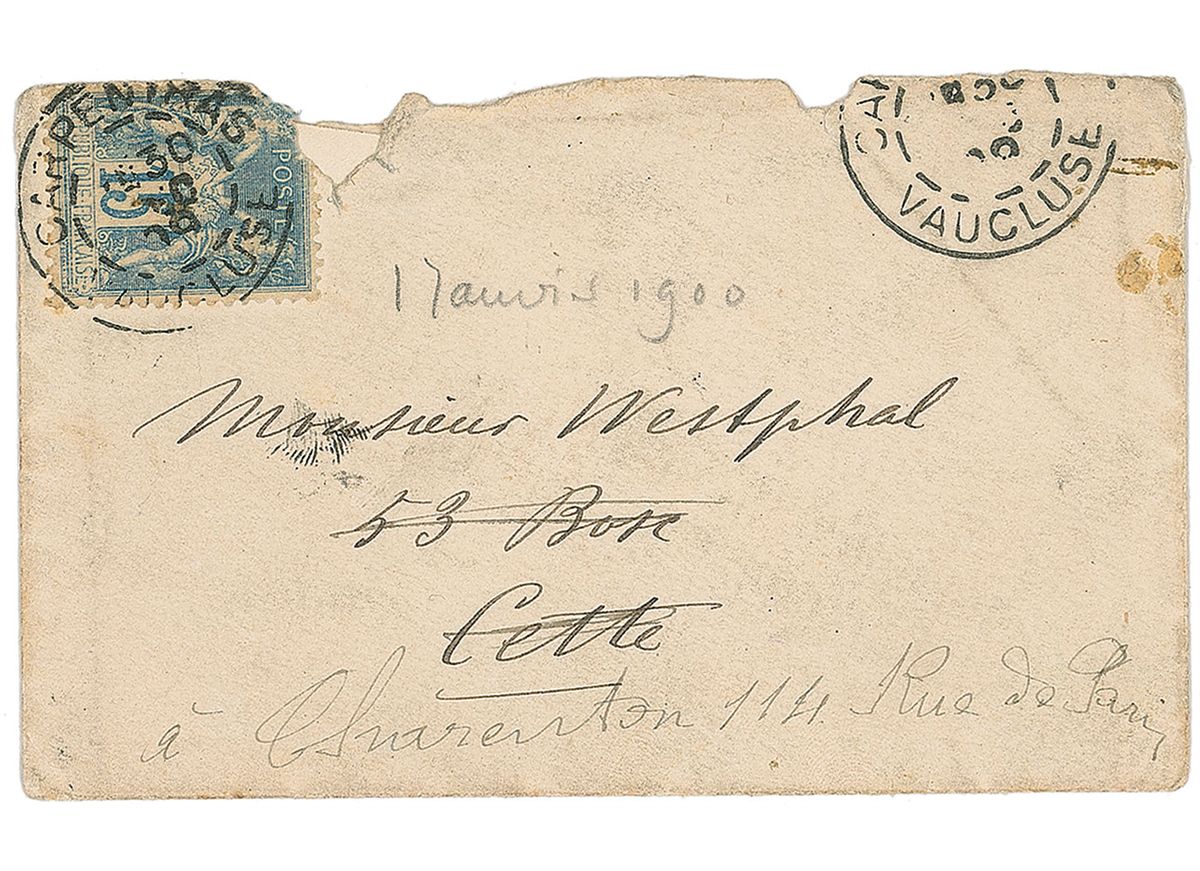 CARPENTRAS
VAUCLUSE
POSTES
15
VAUCLUSE
1 Janvier 1900
Monsieur Westphal
53 Bosc
Cette
à Charenton 114 Rue de Paris